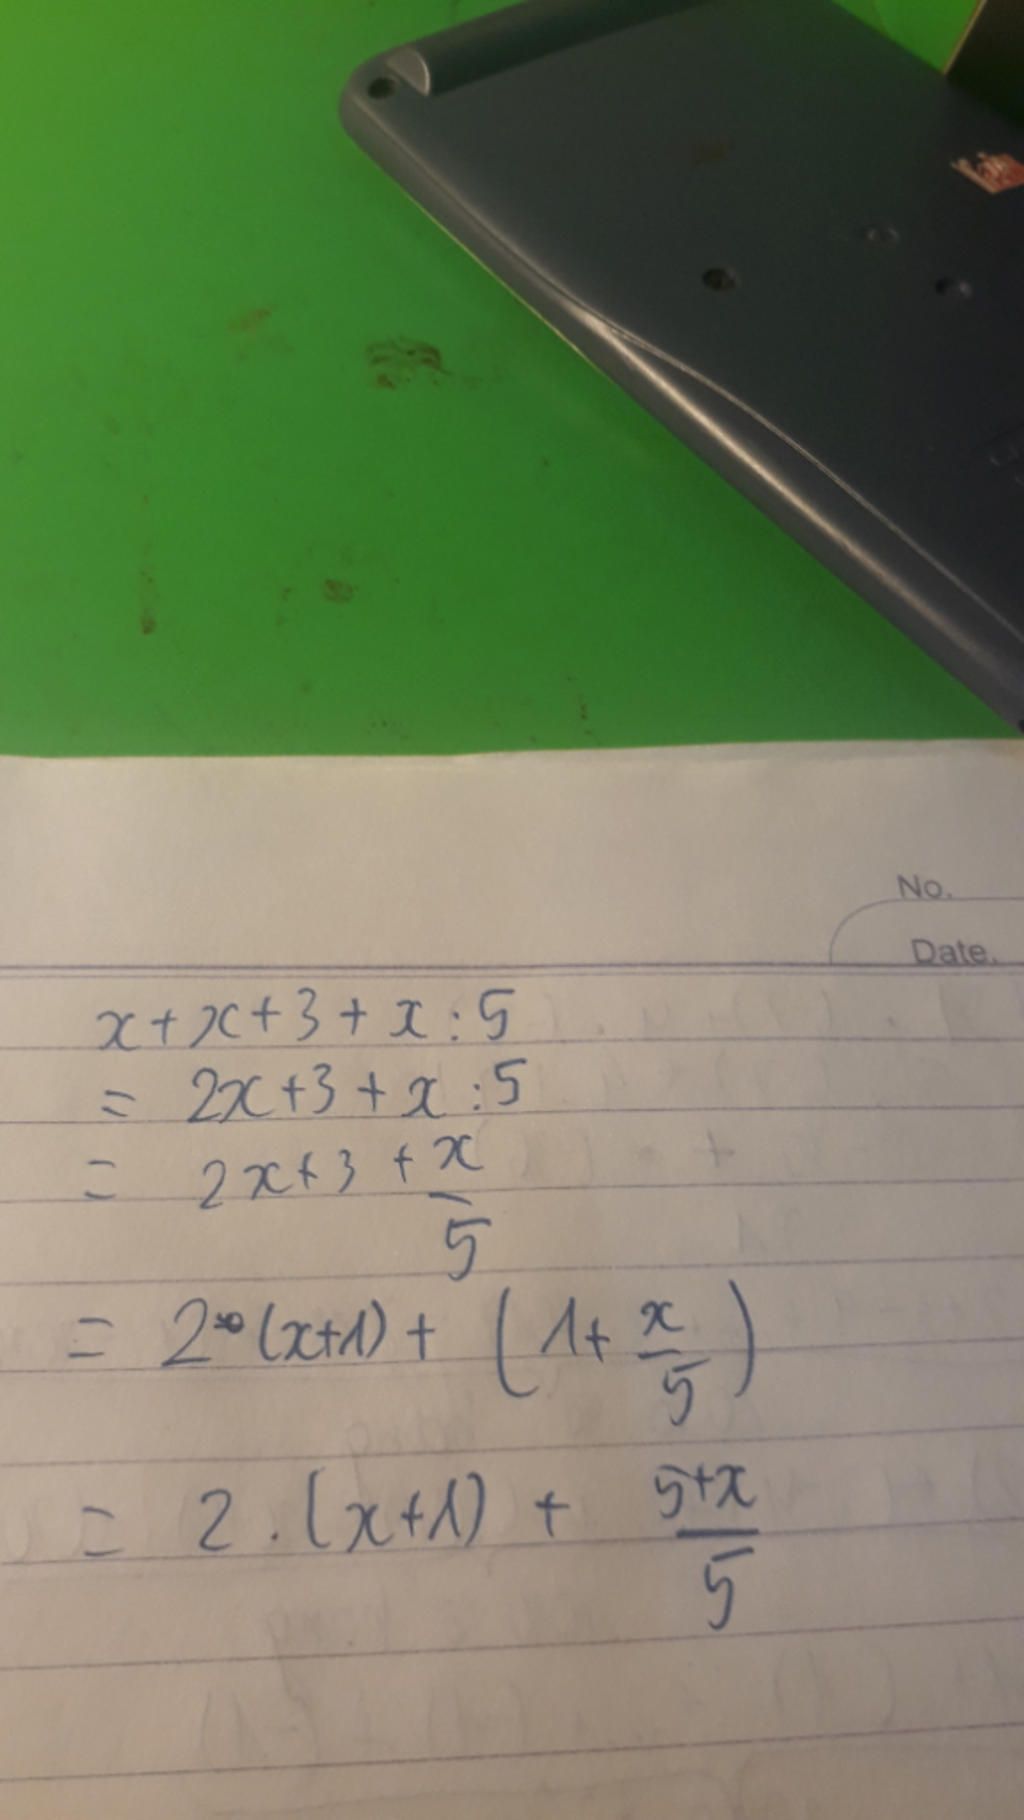 No.
Date.
x+x+3+x:5
= 2x+3+x:5
= 2x+3+x/5
= 2•(x+1)+(1+x/5)
= 2.(x+1)+(5+x)/5